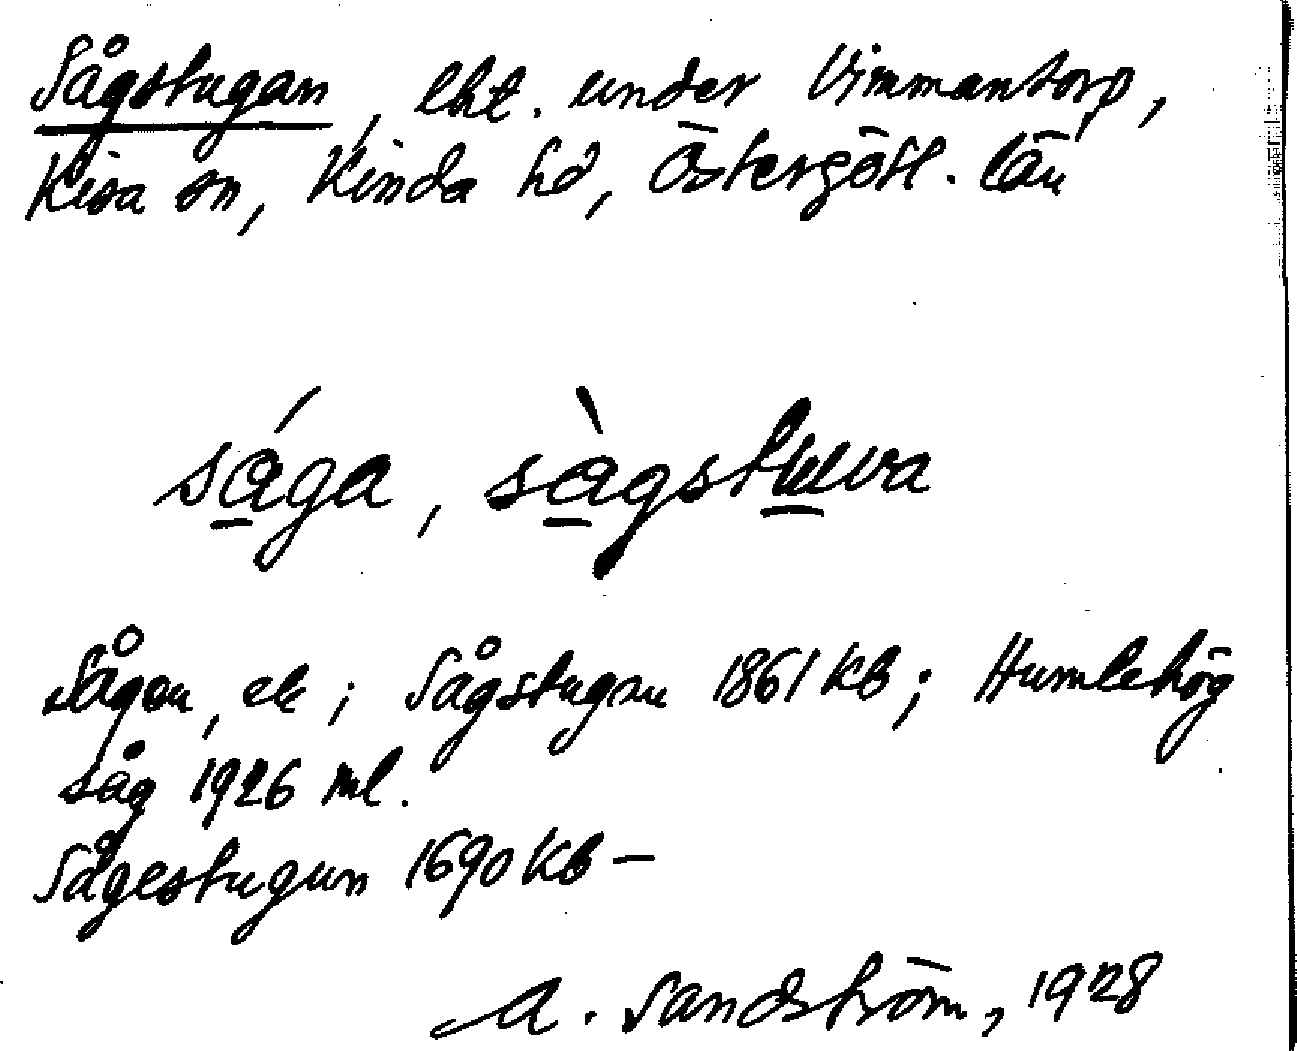 Sågstugan, lht. under Vimmantorp,
Kisa sn, Kinda hd, Östergötl. län
sága, sàgstuva
Sågen, ek; Sågstugan 1861 Kb; Humlehög
såg 1926 ml.
Sågestugun 1690 Kb –
A. Sandström, 1928